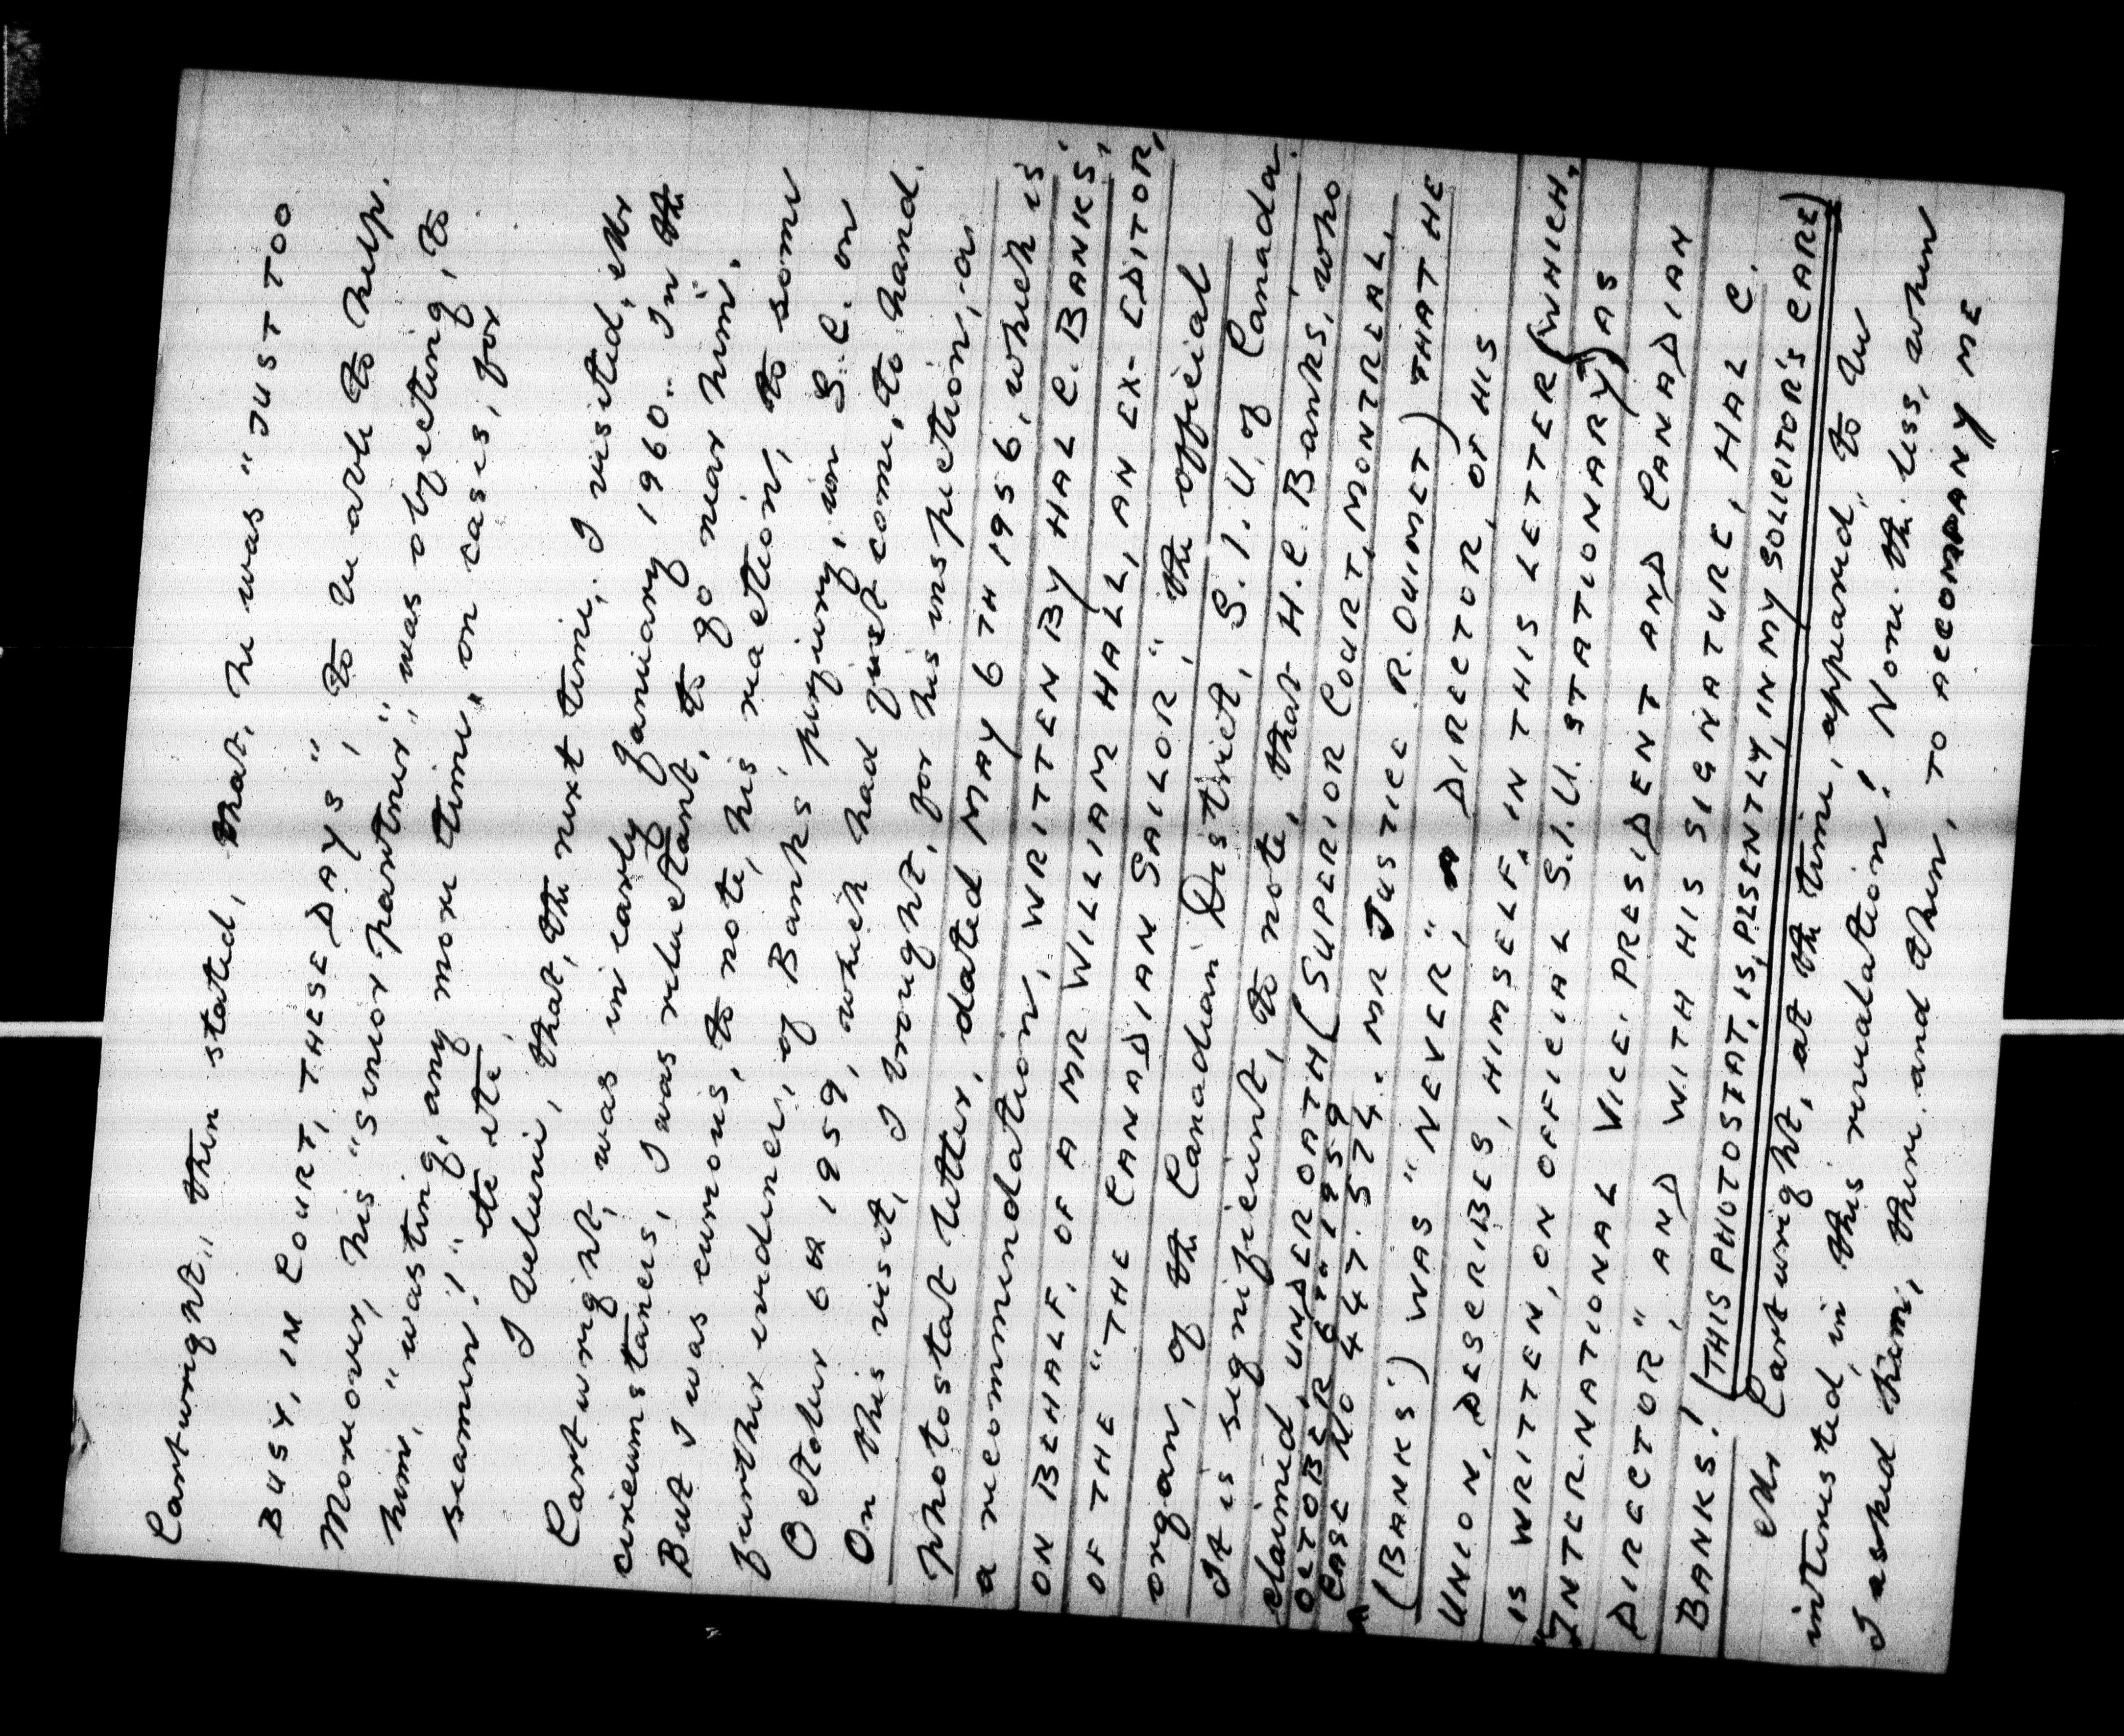 Cartwright,, then stated, that, he was "JUST TOO
BUSY, IN COURT, THESE DAYS", to be able to help.
Moreover, his "senior partner",, was objecting, to
him, "wasting, any more time, on cases, for
seamen!" etc etc.
I believe, that, the next time, I visited, Mr
Cartwright, was in early January 1960.. In the
circumstances, I was reluctant, to go near him.
But I was curious, to note, his reaction, to some
further evidence, of Banks' perjury, in S.C. on
October 6th 1959, which had just come, to hand.
On this visit, I brought, for his inspection, a
photostat letter, dated MAY 6TH 1956, which is
a recommendation, WRITTEN BY HAL C. BANKS,
ON BEHALF, OF A MR WILLIAM HALL, AN EX-EDITOR,
OF THE "THE CANADIAN SAILOR", the official
organ, of the Canadian District, S.I.U. of Canada.
It is significient, to note, that H.C. Banks, who
claimed, UNDER OATH (SUPERIOR COURT, MONTREAL,
OCTOBER 6TH 1959
CASE NO 447.574. MR JUSTICE R. OUIMET) THAT HE
(BANKS) WAS "NEVER", A DIRECTOR, OF HIS
UNION, DESCRIBES, HIMSELF, IN THIS LETTER (WHICH,
IS WRITTEN, ON OFFICIAL S.I.U. STATIONARY) AS
"INTERNATIONAL VICE. PRESIDENT AND CANADIAN
DIRECTOR", AND WITH HIS SIGNATURE, HAL C.
BANKS! (THIS PHOTOSTAT, IS, PLSENTLY, IN MY SOLICITOR'S CARE)
Mr Cartwright, at the time, appeared, to be
interested, in this revalation! None. the. less, when
I asked him, there and then, TO ACCOMPANY ME